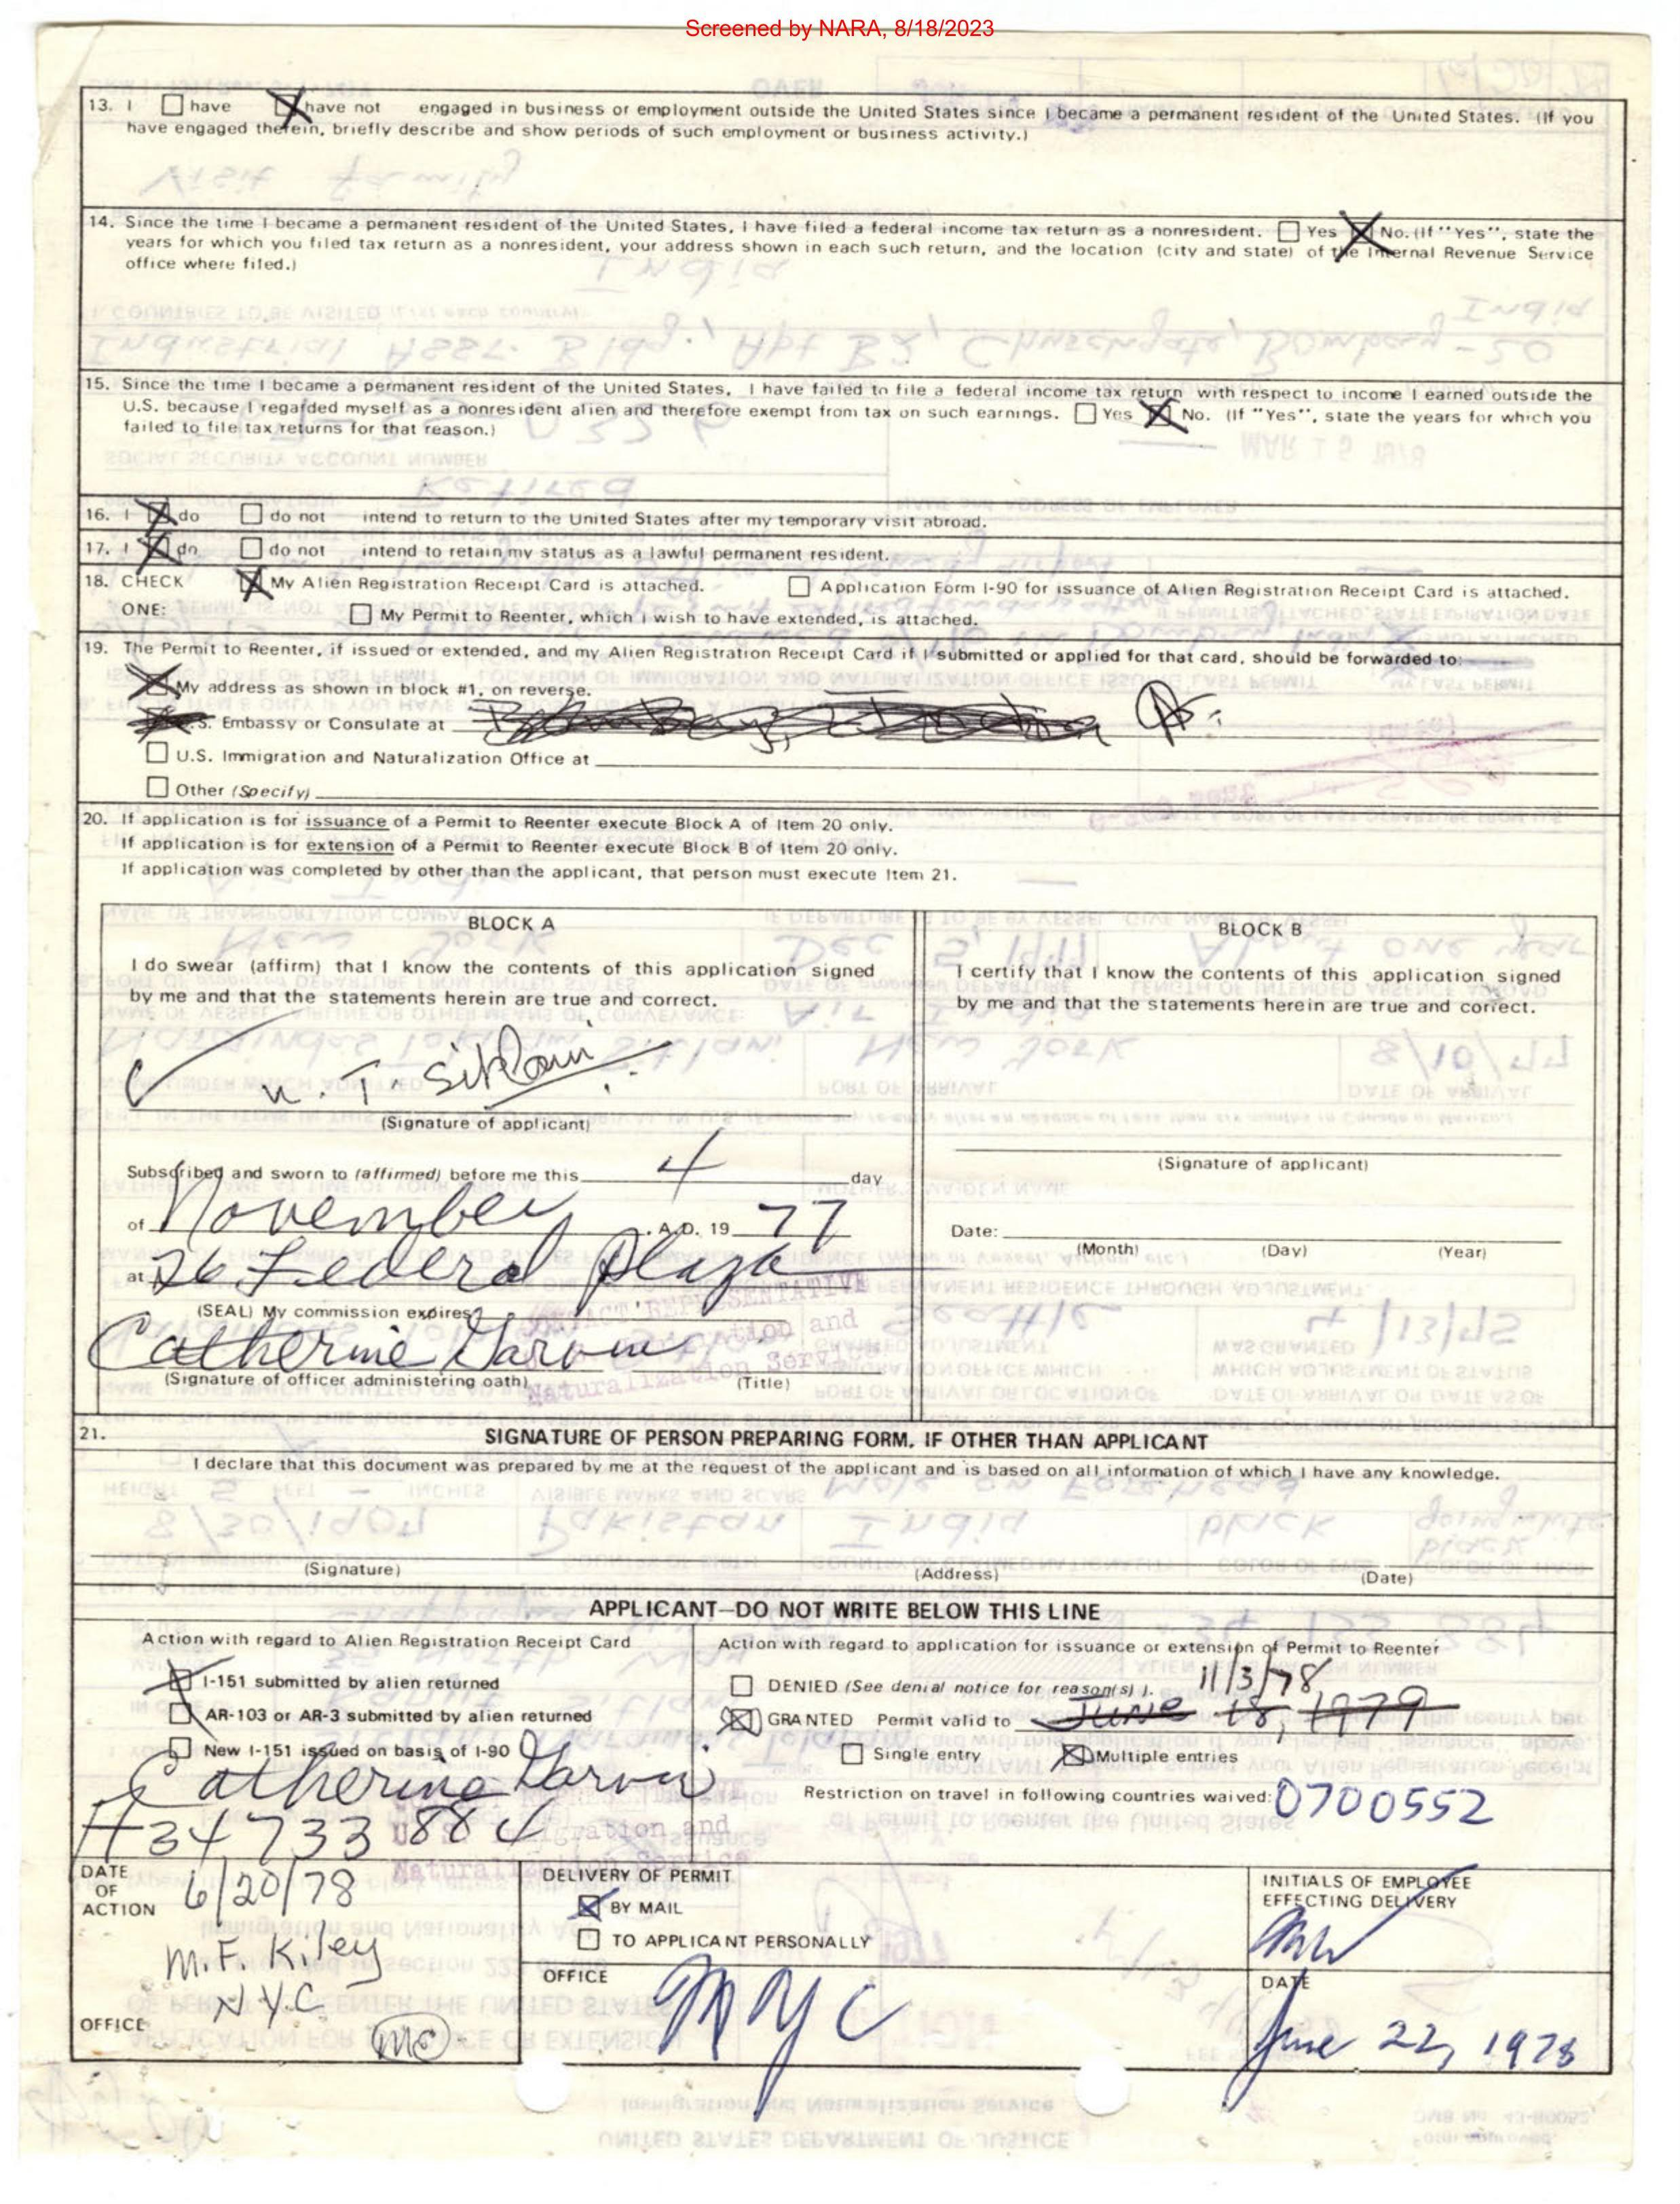 Screened by NARA, 8/18/2023
13. I ☐ have ☒ have not engaged in business or employment outside the United States since I became a permanent resident of the United States. (If you
have engaged therein, briefly describe and show periods of such employment or business activity.)
14. Since the time I became a permanent resident of the United States, I have filed a federal income tax return as a nonresident. ☐ Yes ☒ No. (If "Yes", state the
years for which you filed tax return as a nonresident, your address shown in each such return, and the location (city and state) of the Internal Revenue Service
office where filed.)
15. Since the time I became a permanent resident of the United States, I have failed to file a federal income tax return with respect to income I earned outside the
U.S. because I regarded myself as a nonresident alien and therefore exempt from tax on such earnings. ☐ Yes ☒ No. (If "Yes", state the years for which you
failed to file tax returns for that reason.)
16. I ☒ do ☐ do not intend to return to the United States after my temporary visit abroad.
17. I ☒ do ☐ do not intend to retain my status as a lawful permanent resident.
18. CHECK ☒ My Alien Registration Receipt Card is attached. ☐ Application Form I-90 for issuance of Alien Registration Receipt Card is attached.
ONE: ☐ My Permit to Reenter, which I wish to have extended, is attached.
19. The Permit to Reenter, if issued or extended, and my Alien Registration Receipt Card if I submitted or applied for that card, should be forwarded to:
☒ My address as shown in block #1, on reverse.
S. Embassy or Consulate at Bombay, India
☐ U.S. Immigration and Naturalization Office at
☐ Other (Specify)
20. If application is for issuance of a Permit to Reenter execute Block A of Item 20 only.
If application is for extension of a Permit to Reenter execute Block B of Item 20 only.
If application was completed by other than the applicant, that person must execute Item 21.
BLOCK A
I do swear (affirm) that I know the contents of this application signed
by me and that the statements herein are true and correct.
N. T. Sitlani
(Signature of applicant)
Subscribed and sworn to (affirmed) before me this 4 day
of November, A.D. 19 77
at 26 Federal Plaza
(SEAL) My commission expires
CONTACT REPRESENTATIVE
Immigration and
Naturalization Service
Catherine Garvin
(Signature of officer administering oath) (Title)
BLOCK B
I certify that I know the contents of this application signed
by me and that the statements herein are true and correct.
(Signature of applicant)
Date:
(Month) (Day) (Year)
21. SIGNATURE OF PERSON PREPARING FORM, IF OTHER THAN APPLICANT
I declare that this document was prepared by me at the request of the applicant and is based on all information of which I have any knowledge.
(Signature) (Address) (Date)
APPLICANT—DO NOT WRITE BELOW THIS LINE
Action with regard to Alien Registration Receipt Card
☒ I-151 submitted by alien returned
☐ AR-103 or AR-3 submitted by alien returned
☐ New I-151 issued on basis of I-90
Catherine Garvin
A34 733 884
U. S. Immigration and
Naturalization Service
Action with regard to application for issuance or extension of Permit to Reenter
☐ DENIED (See denial notice for reason(s)). 11/3/78
☒ GRANTED Permit valid to June 18, 1979
☐ Single entry ☒ Multiple entries
Restriction on travel in following countries waived: 0700552
DATE
OF
ACTION 6/20/78
M.F. Kiley
N.Y.C.
OFFICE MC
DELIVERY OF PERMIT
☒ BY MAIL
☐ TO APPLICANT PERSONALLY
OFFICE
NYC
INITIALS OF EMPLOYEE
EFFECTING DELIVERY
DATE
June 22, 1978